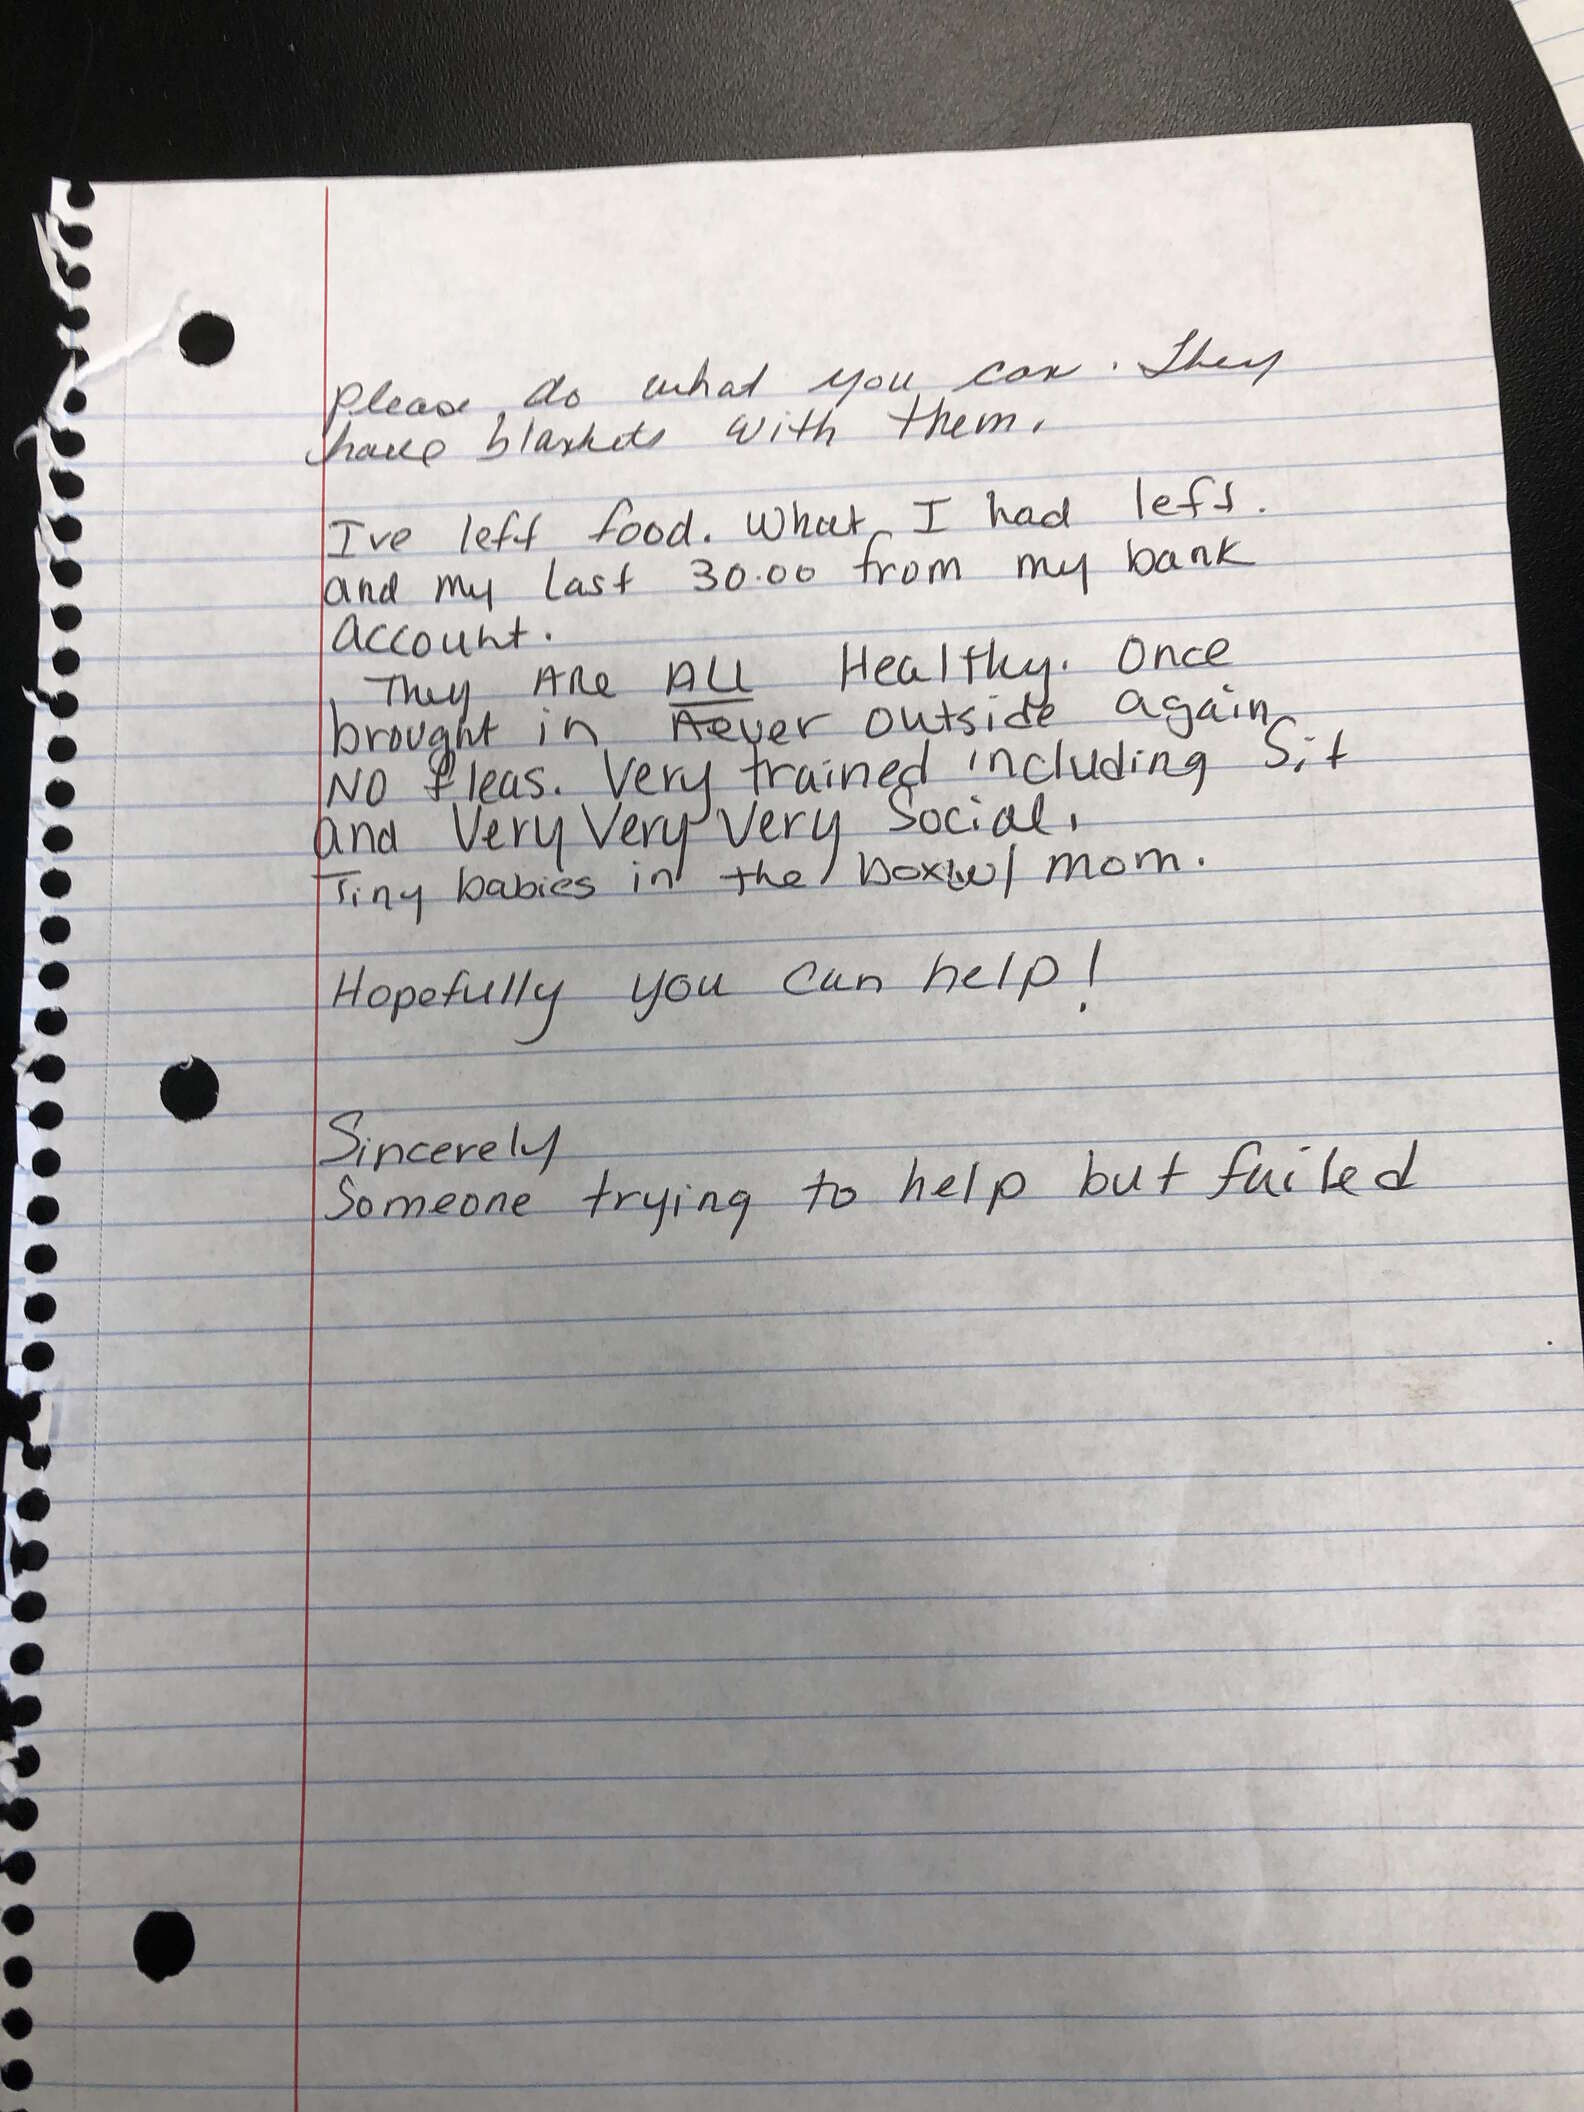 please do what you can. They
have blankets with them.
I've left food. What I had left.
and my last 30.00 from my bank
account.
They ARe ALL Healthy. Once
brought in never outside again
NO fleas. Very trained including Sit
and Very Very Very Social.
Tiny babies in the box w/ mom.
Hopefully you can help!
Sincerely
Someone trying to help but failed